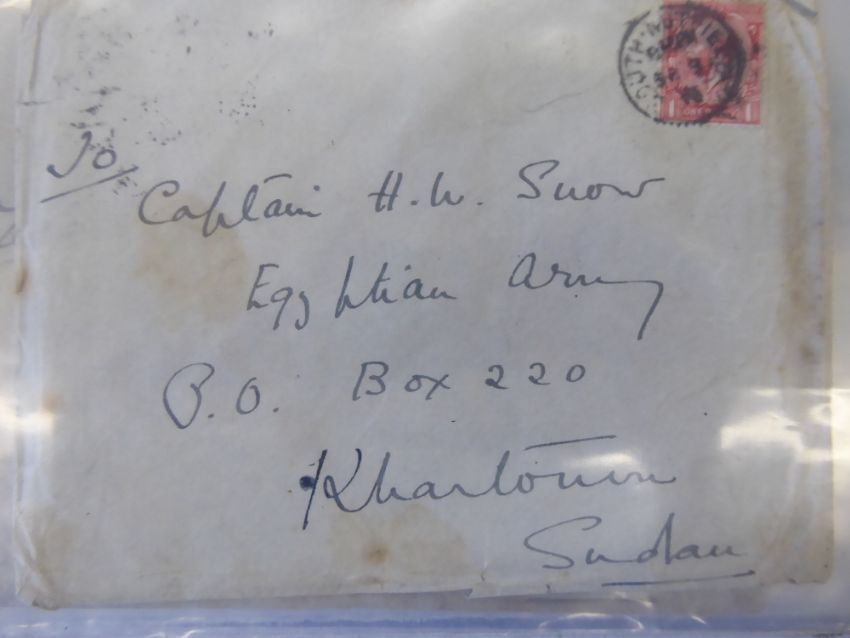 To
Captain H. W. Snow
Egyptian Army
P.O. Box 220
Khartoum
Sudan